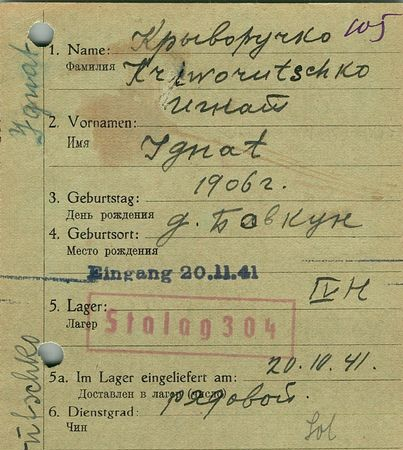 1. Name: Крыворучко 105
Фамилия Kriworutschko
Игнат
2. Vornamen:
Имя Ignat
3. Geburtstag: 1906 г.
День рождения
4. Geburtsort: д. Бовкун
Место рождения
Eingang 20.11.41
IV H
5. Lager: Stalag 304
Лагер
20.10.41.
5a. Im Lager eingeliefert am:
Доставлен в лагер (число)
6. Dienstgrad: рядовой.
Чин Sol
Ignat
utschko